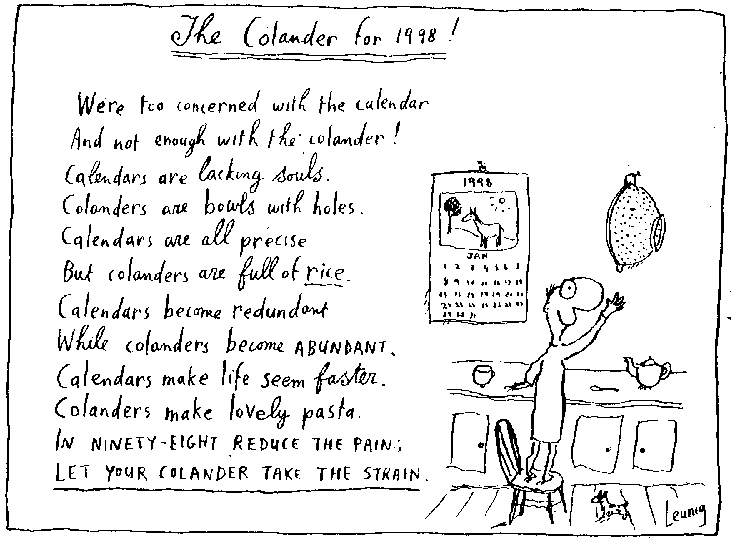 The Colander for 1998!
Were too concerned with the calendar
And not enough with the colander!
Calendars are lacking souls.
Colanders are bowls with holes.
Calendars are all precise
But colanders are full of rice.
Calendars become redundant
While colanders become ABUNDANT.
Calendars make life seem faster.
Colanders make lovely pasta.
IN NINETY-EIGHT REDUCE THE PAIN;
LET YOUR COLANDER TAKE THE STRAIN.
1998
JAN
1 2 3 4 5 6 7
8 9 10 11 12 13 14
Leunig